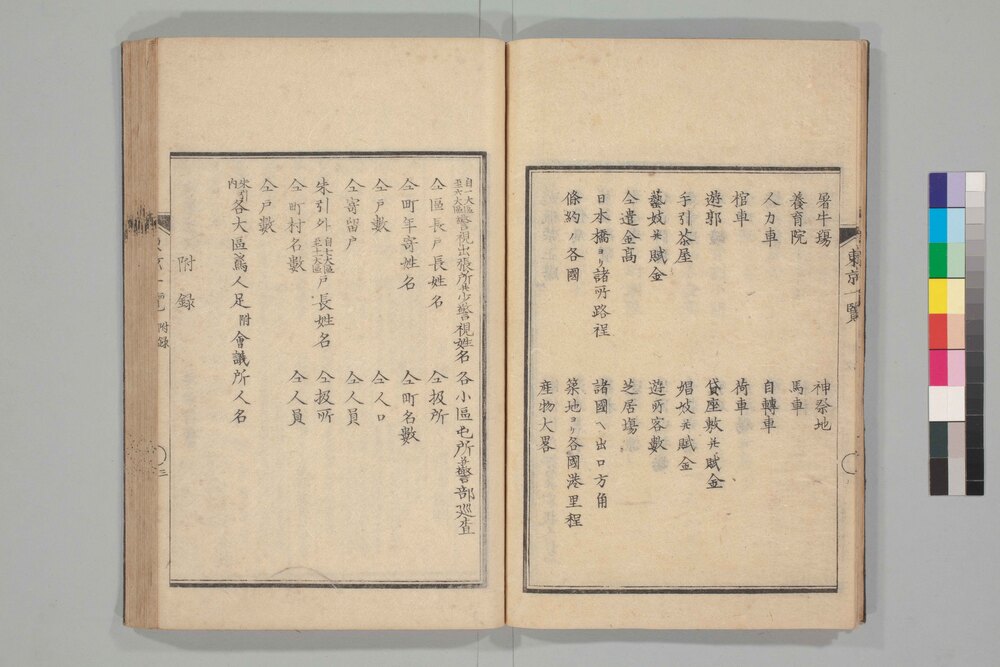 屠牛塲　神祭地
養育院　馬車
人力車　自轉車
棺車　荷車
遊郭　貸座敷幷賦金
手引茶屋　娼妓幷賦金
藝妓幷賦金　遊所客數
仝遺金高　芝居塲
日本橋ヨリ諸所路程　諸國ヘ出口方角
條約ノ各國　築地ヨリ各國港里程
産物大畧
東京一覽
自一大區至六大區警視出張所幷少警視姓名　各小區屯所幷警部巡査
仝區長戸長姓名　仝扱所
仝町年寄姓名　仝町名數
仝戸數　仝人口
仝寄留戸　仝人員
朱引外自七大區至十一大區戸長姓名　仝扱所
仝町村名數　仝人員
仝戸數
朱引内各大區爲人足附會議所人名
附録
一覽　附録　三